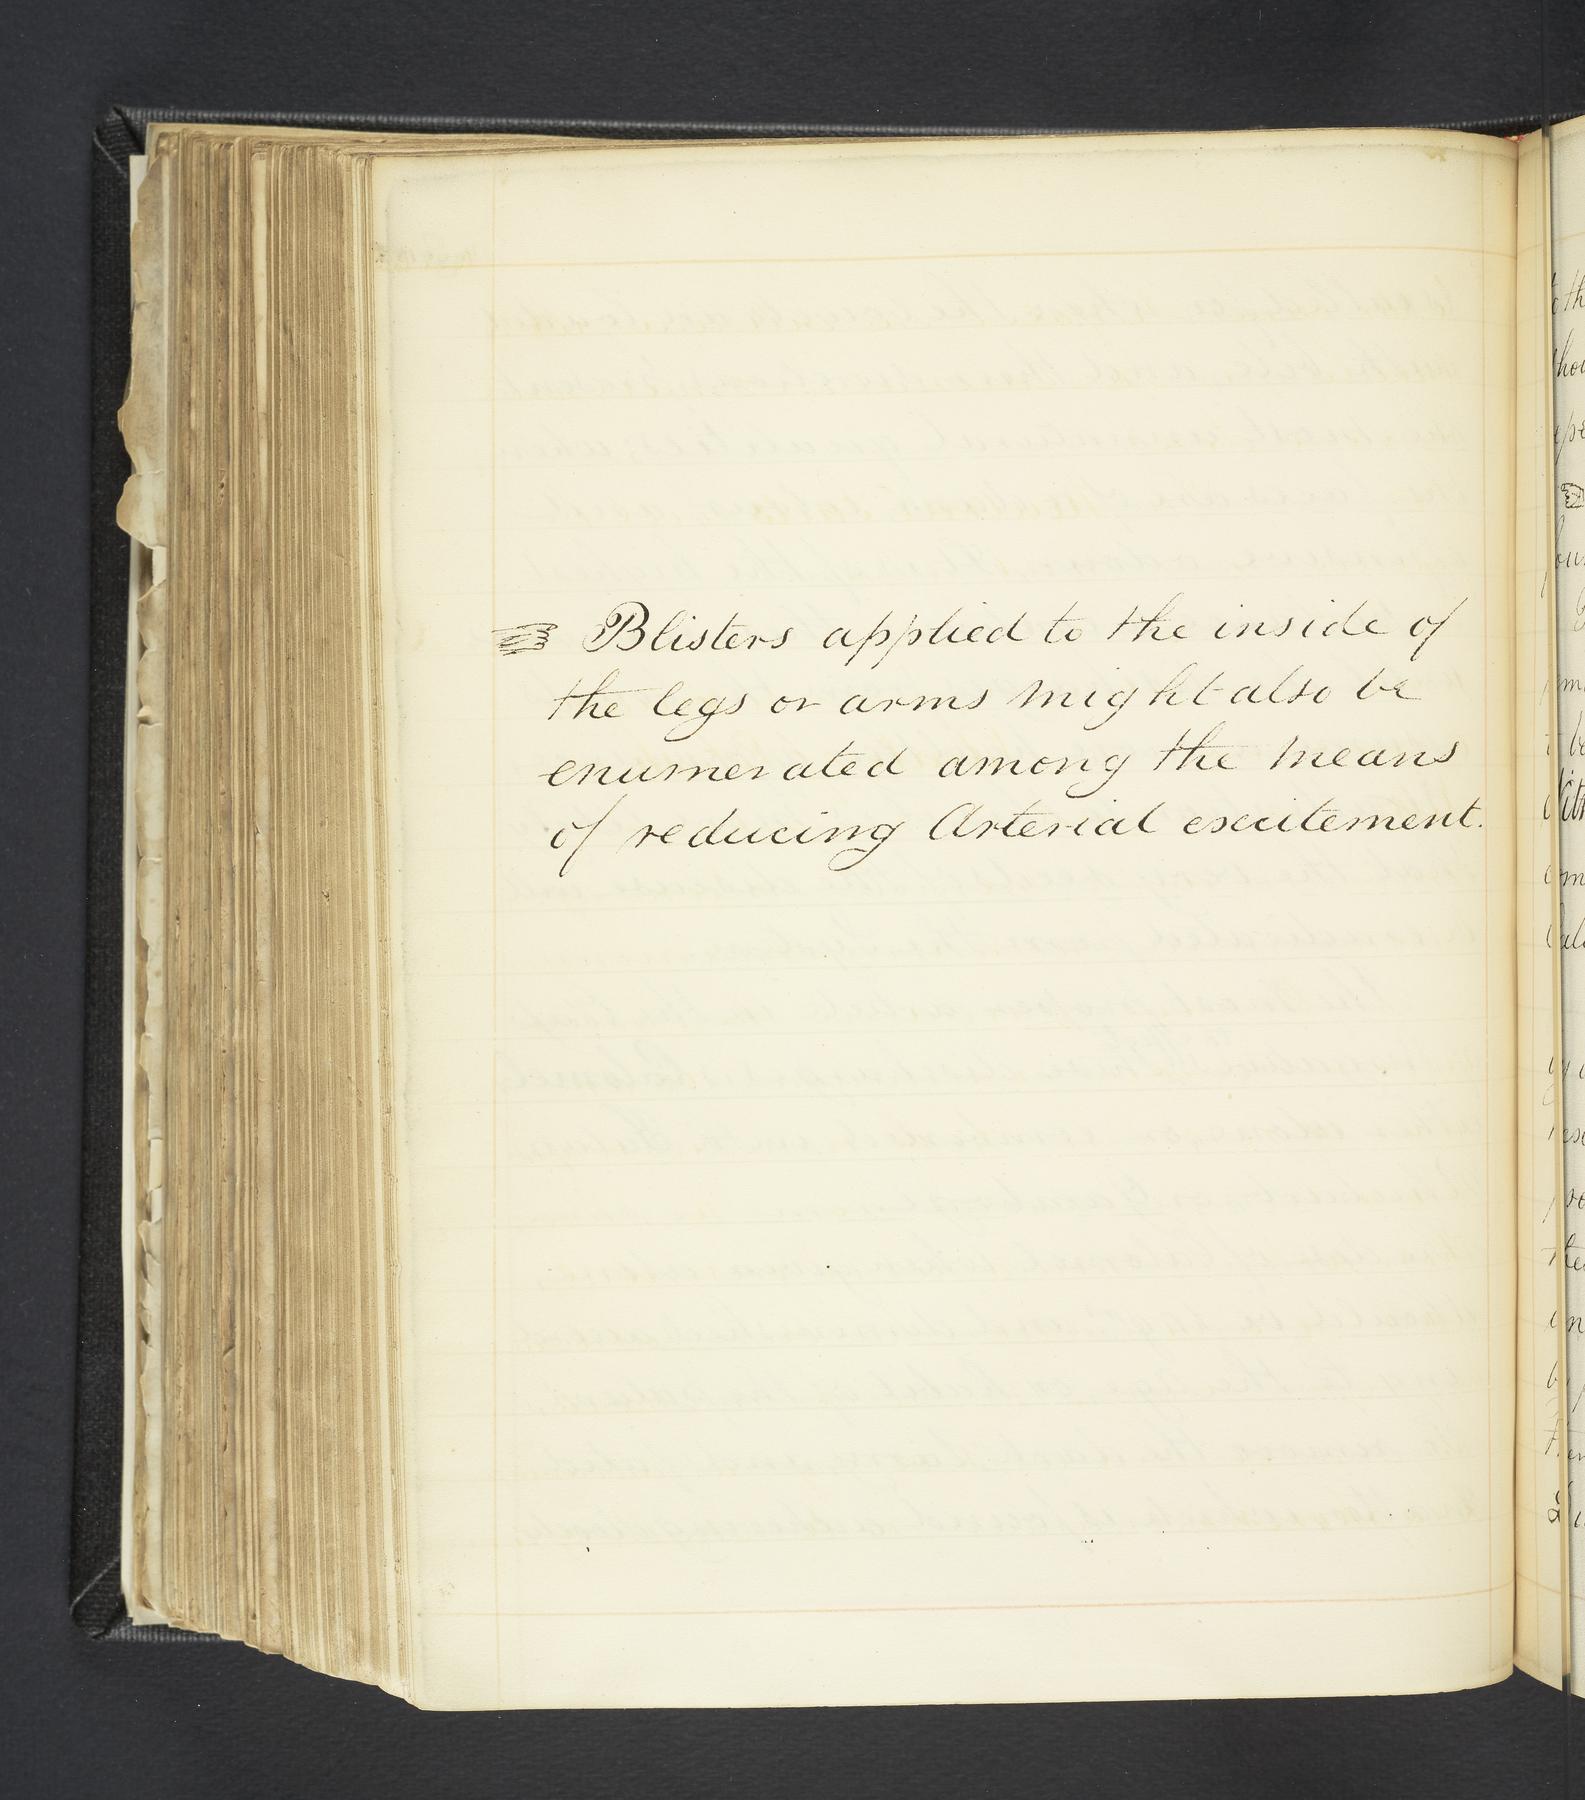 ☞ Blisters applied to the inside of
the legs or arms might also be
enumerated among the means
of reducing Arterial excitement.